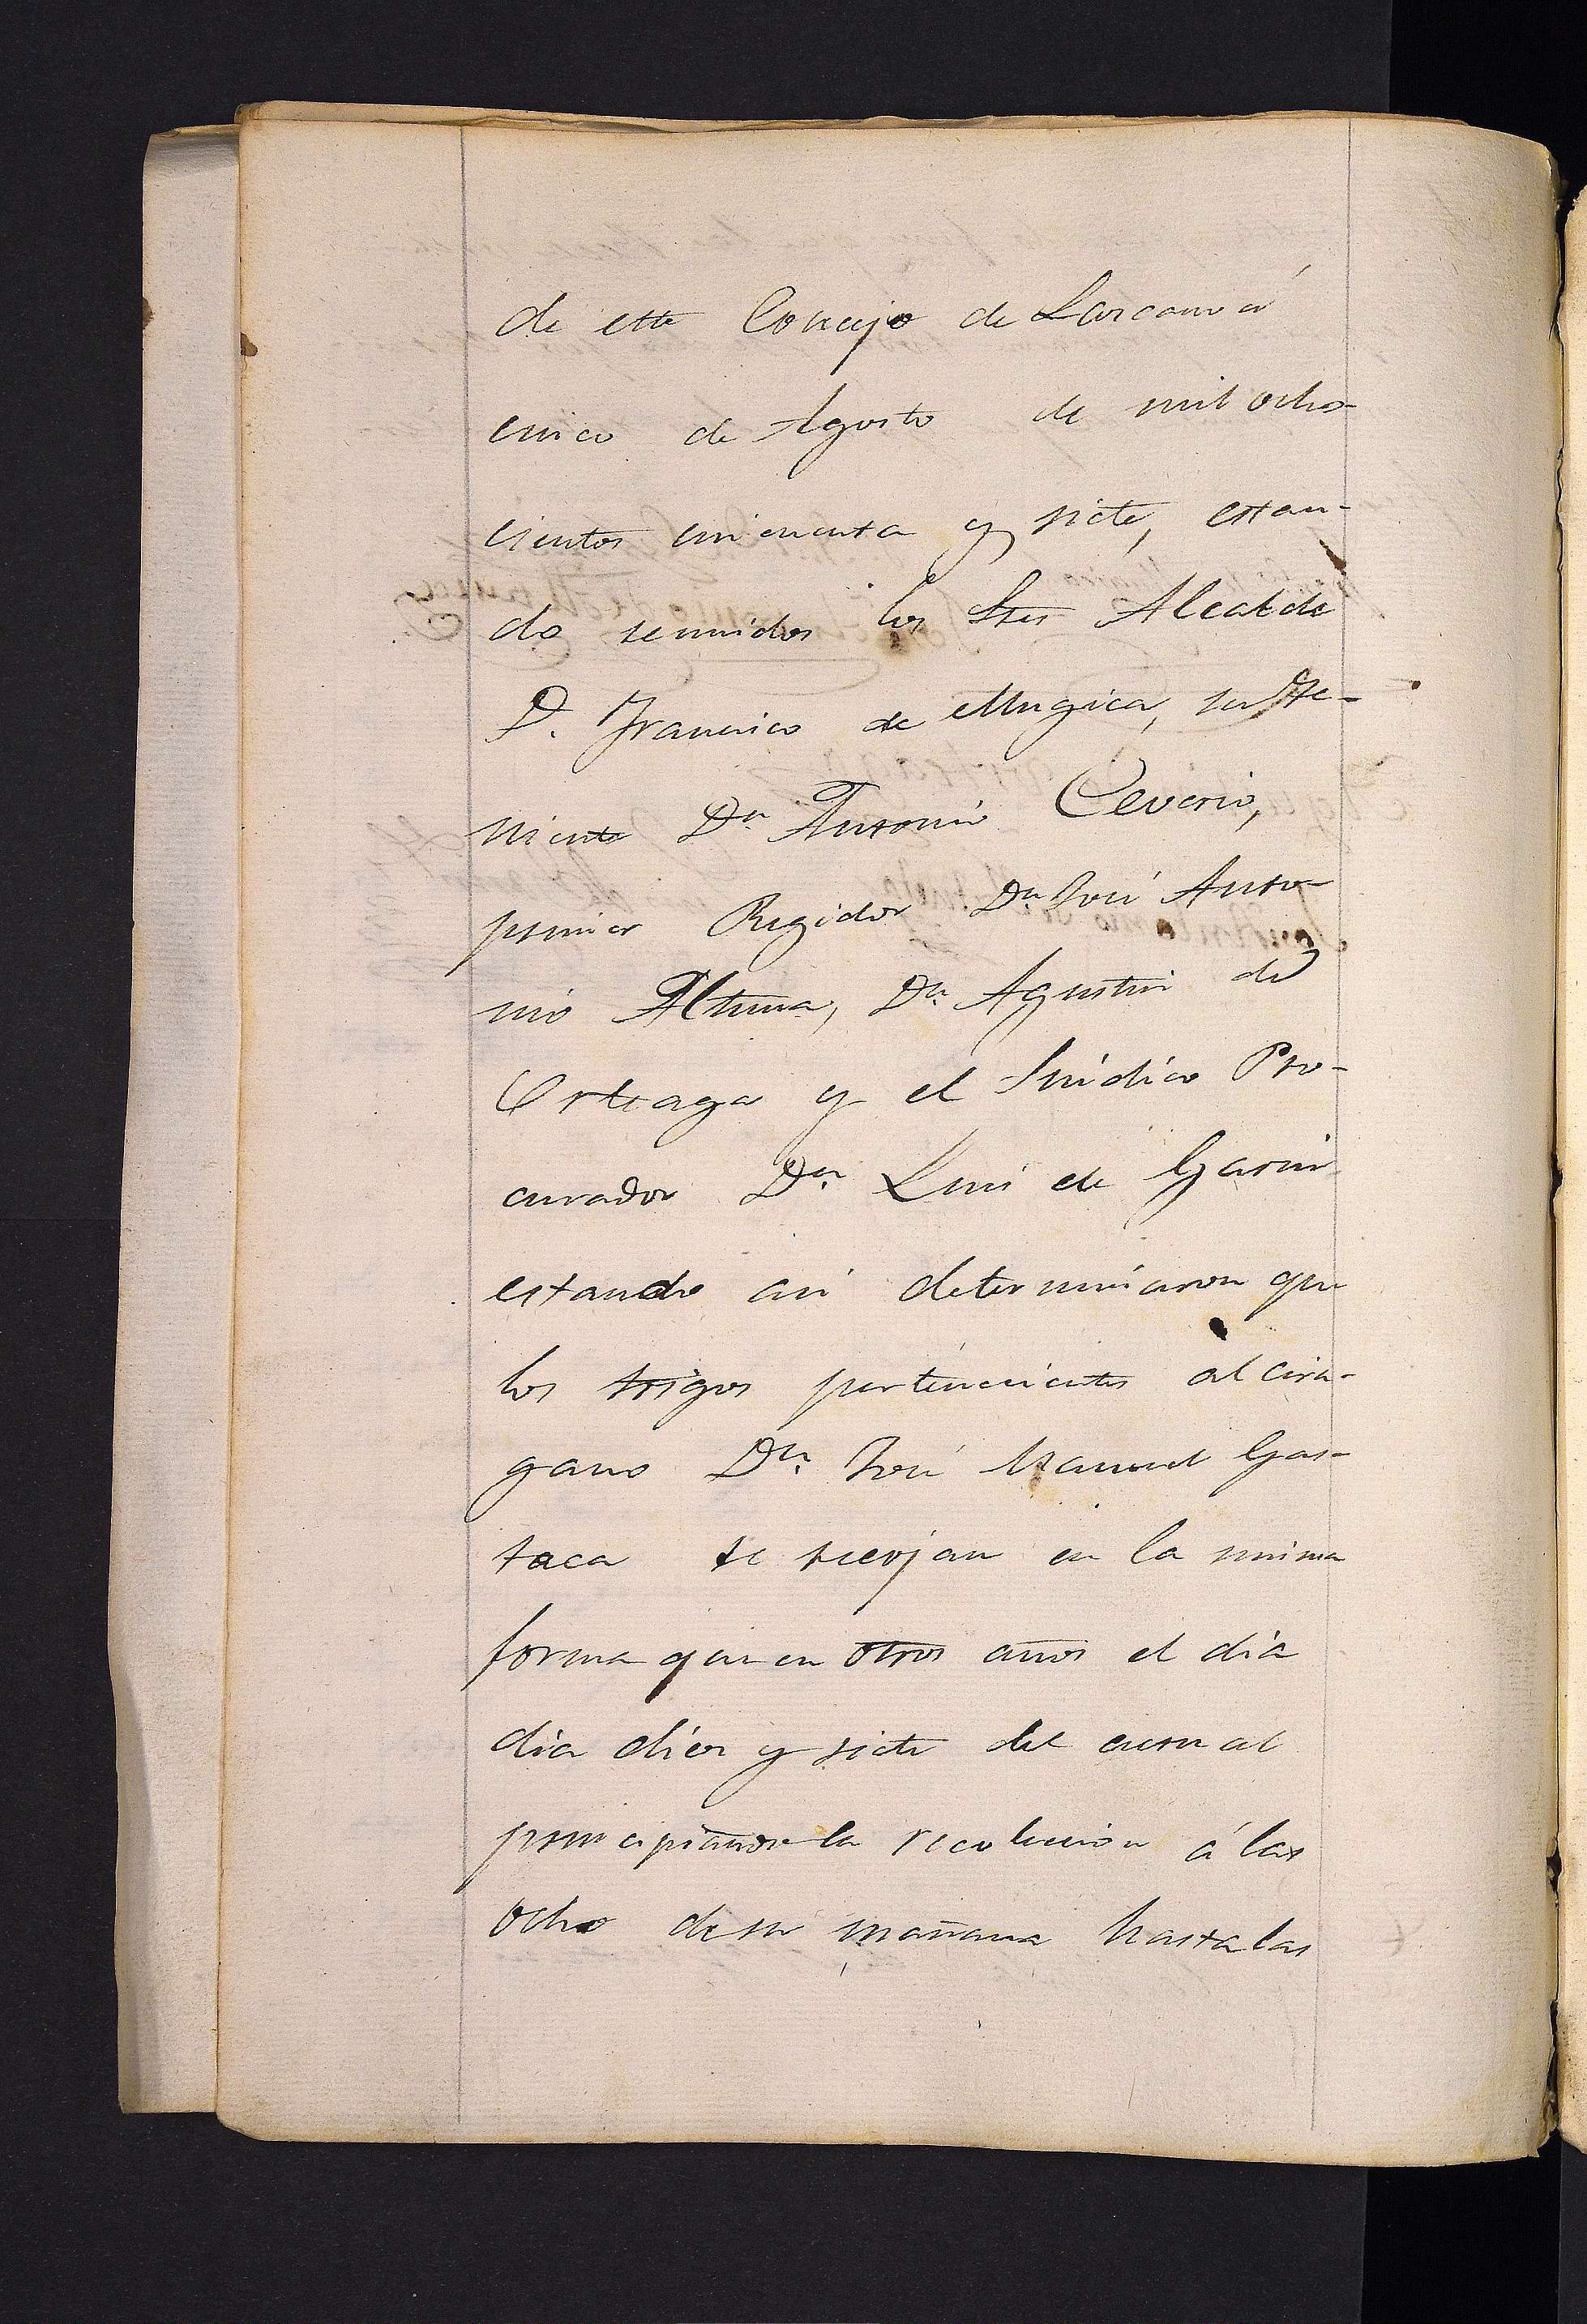 de este Concejo de Lazcano á
cinco de Agosto de mil ocho-
cientos cincuenta y siete, estan-
do reunidos los Sres Alcalde
D. Francisco de Mugica, su te-
niente Dn Antonio Ceverio,
primer Regidor Dn José Anto-
nio Altuna, Dn Agustin de
Orteaga y el Síndico Pro-
curador Dn Luis de Garin
estando asi determinaron que
los trigos pertenecientes al ciru-
gano Dn José Manuel Gas-
taca se recojan en la misma
forma que en otros años el dia
dia diez y siete del actual
principiandose la recoleccion á las
ocho de su mañana hasta las